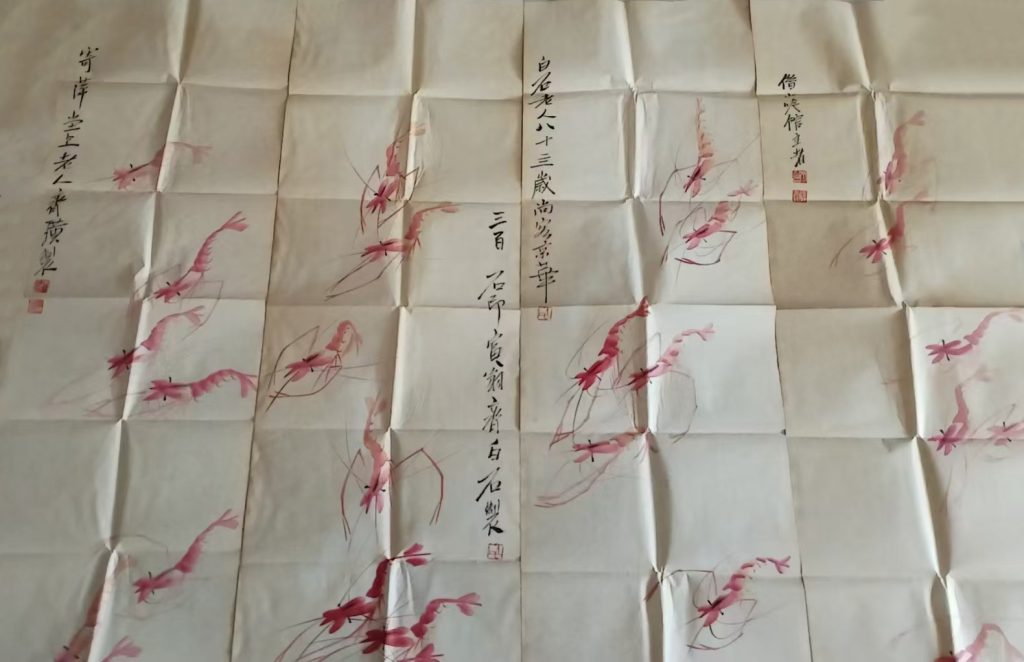 借山吟館主者
白石老人八十三歲尚客京華
三百石印富翁齊白石製
寄萍堂上老人齊璜製